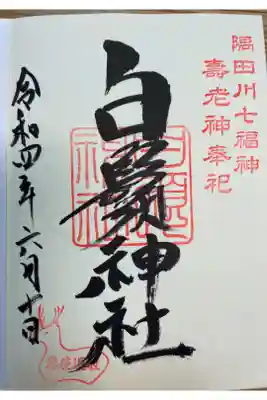 隅田川七福神
壽老神奉祀
白鬚神社
令和四年六月十日